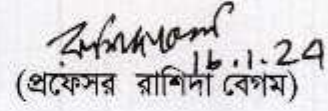 16.1.24
(প্রফেসর রাশিদা বেগম)